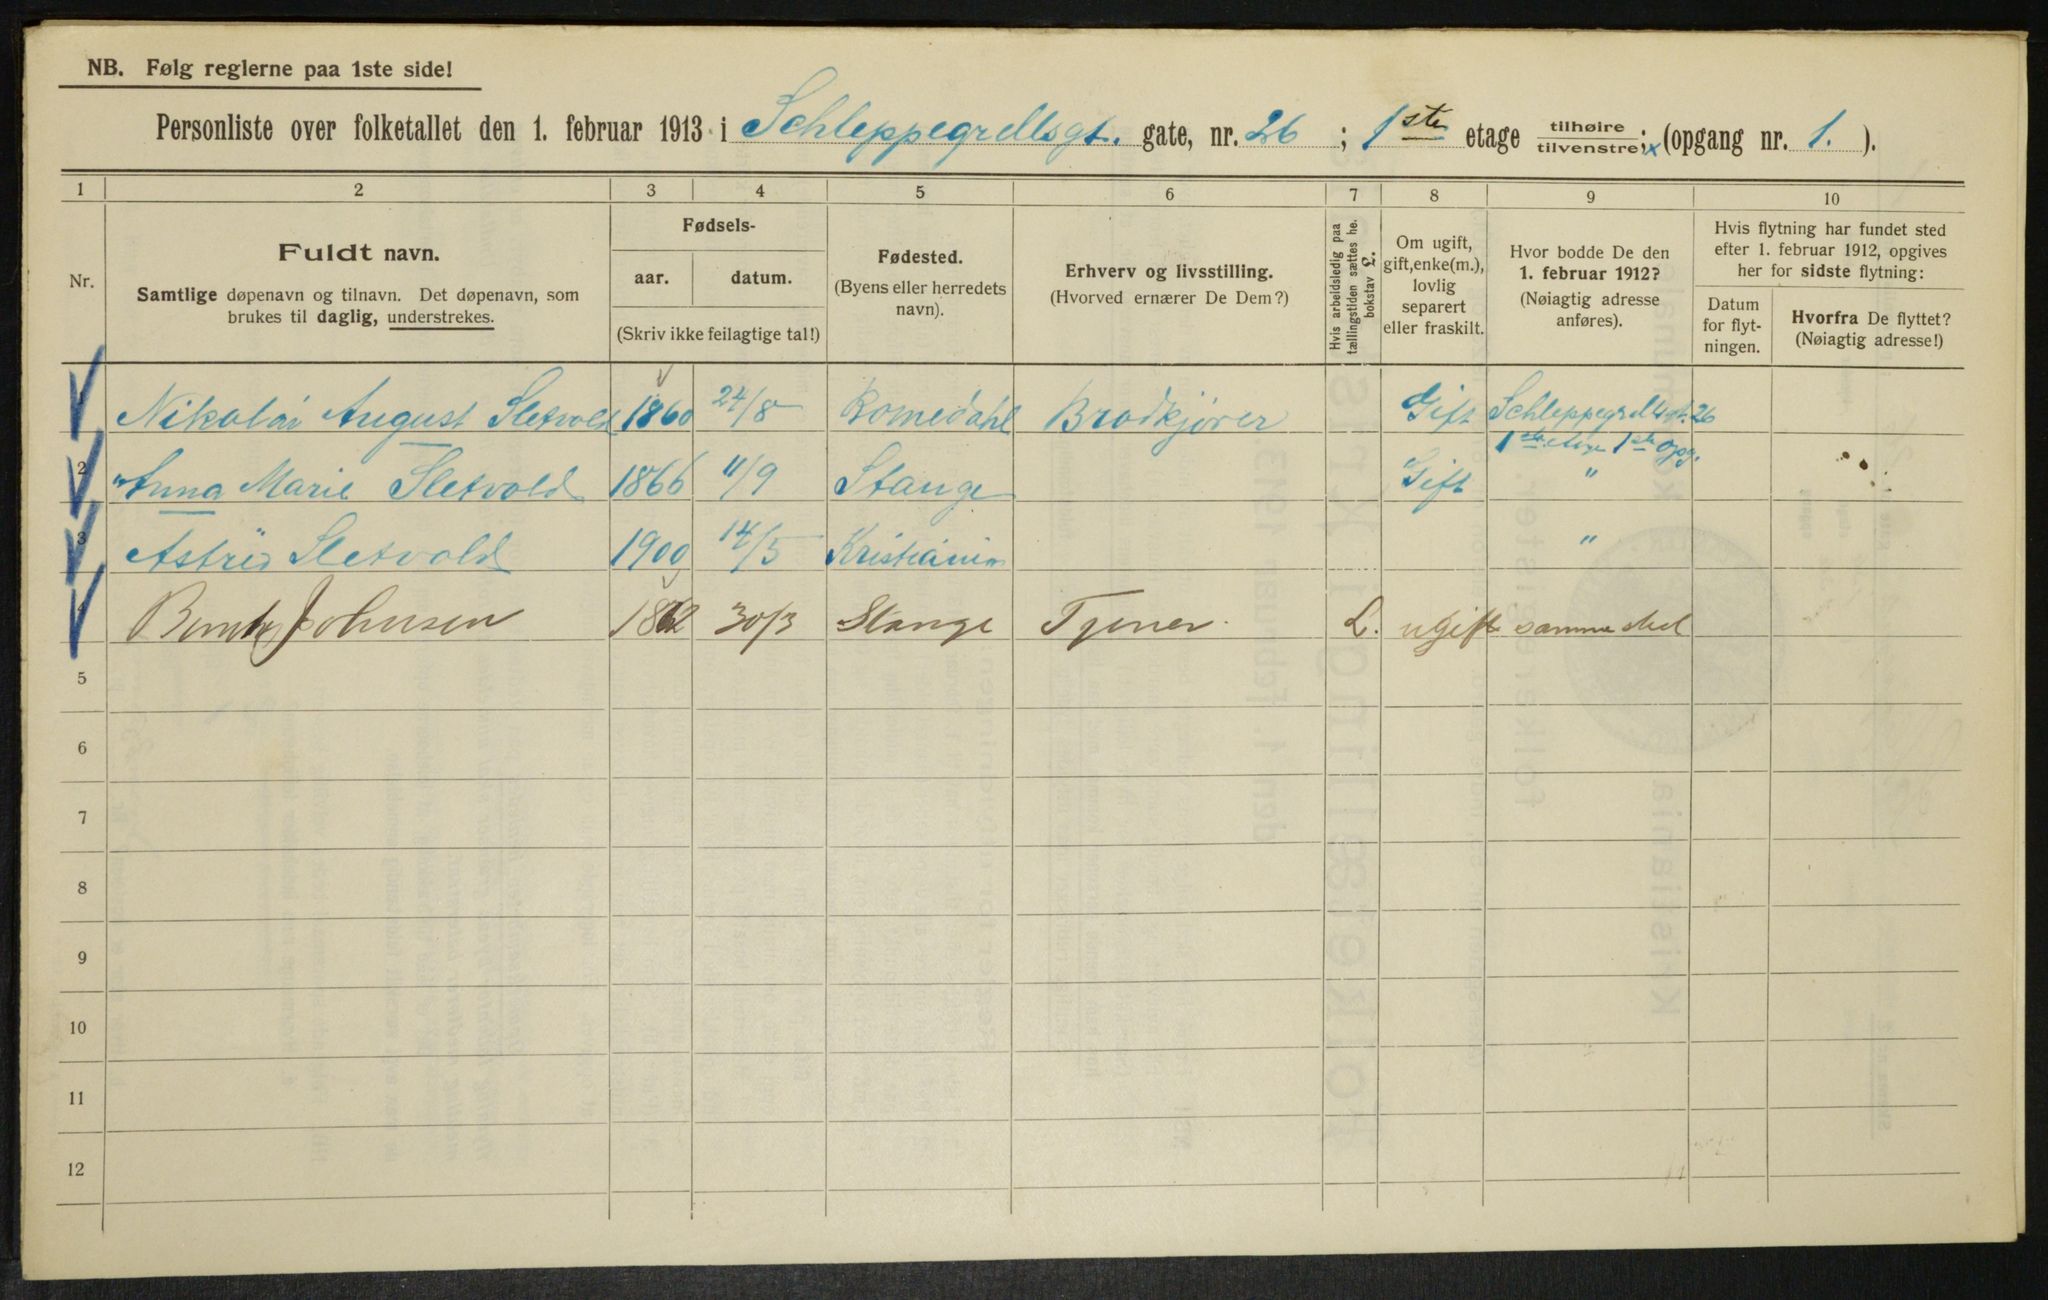 NB. Følg reglerne paa 1ste side!
Personliste over folketallet den 1. februar 1913 i Schleppegrellsgt. gate, nr. 26 ; 1ste etage tilhøire tilvenstre x; (opgang nr. 1. ).
1 2 3 4 5 6 7 8 9 10
Nr.
Fuldt navn.
Samtlige døpenavn og tilnavn. Det døpenavn, som
brukes til daglig, understrekes.
Fødsels-
aar. datum.
(Skriv ikke feilagtige tal!)
Fødested.
(Byens eller herredets
navn).
Erhverv og livsstilling.
(Hvorved ernærer De Dem?)
Hvis arbeidsledig paa
tællingstiden sættes he.
bokstav L.
Om ugift,
gift, enke(m.),
lovlig
separert
eller fraskilt.
Hvor bodde De den
1. februar 1912?
(Nøiagtig adresse
anføres).
Hvis flytning har fundet sted
efter 1. februar 1912, opgives
her for sidste flytning:
Datum
for flyt-
ningen.
Hvorfra De flyttet?
(Nøiagtig adresse!)
1 Nikolai August Sletvold 1860 24/8 Romedahl Brødkjører Gift Schleppegrellsgt. 26
1ste etage 1ste opg.
2 Anna Marie Sletvold 1866 11/9 Stange Gift "
3 Astrid Sletvold 1900 14/5 Kristiania "
4 Johnsen 30/3 Stange Tjener L. ugift samme sted
5
6
7
8
9
10
11
12